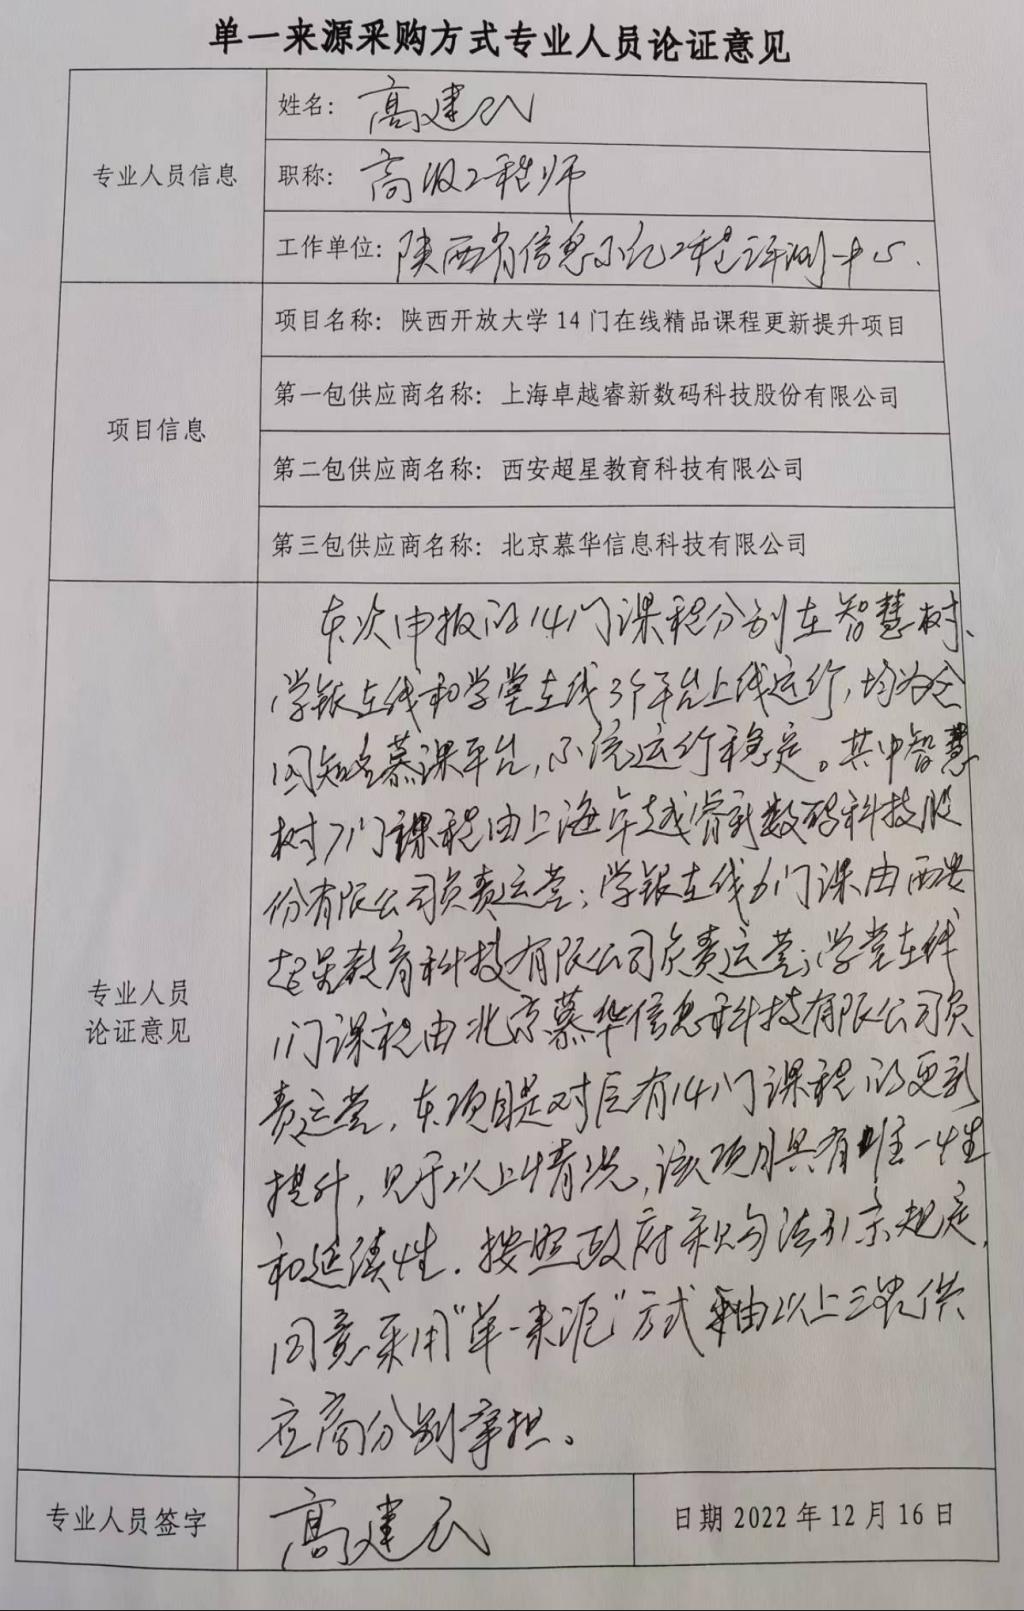 单一来源采购方式专业人员论证意见
专业人员信息
姓名：高建民
职称：高级工程师
工作单位：陕西省信息系统工程评测中心.
项目信息
项目名称：陕西开放大学14门在线精品课程更新提升项目
第一包供应商名称：上海卓越睿新数码科技股份有限公司
第二包供应商名称：西安超星教育科技有限公司
第三包供应商名称：北京慕华信息科技有限公司
专业人员
论证意见
本次申报的14门课程分别在智慧树、
学银在线和学堂在线3个平台上线运行，均为全
国知名慕课平台，系统运行稳定。其中智慧
树7门课程由上海卓越睿新数码科技股
份有限公司负责运营；学银在线6门课由西安
超星教育科技有限公司负责运营；学堂在线
1门课程由北京慕华信息科技有限公司负
责运营，本项目是对已有14门课程的更新
提升，见于以上情况，该项目具有唯一性
和延续性．按照政府采购法相关规定，
同意采用“单一来源”方式由以上三家供
应商分别承担。
专业人员签字
高建民
日期 2022 年 12 月 16 日